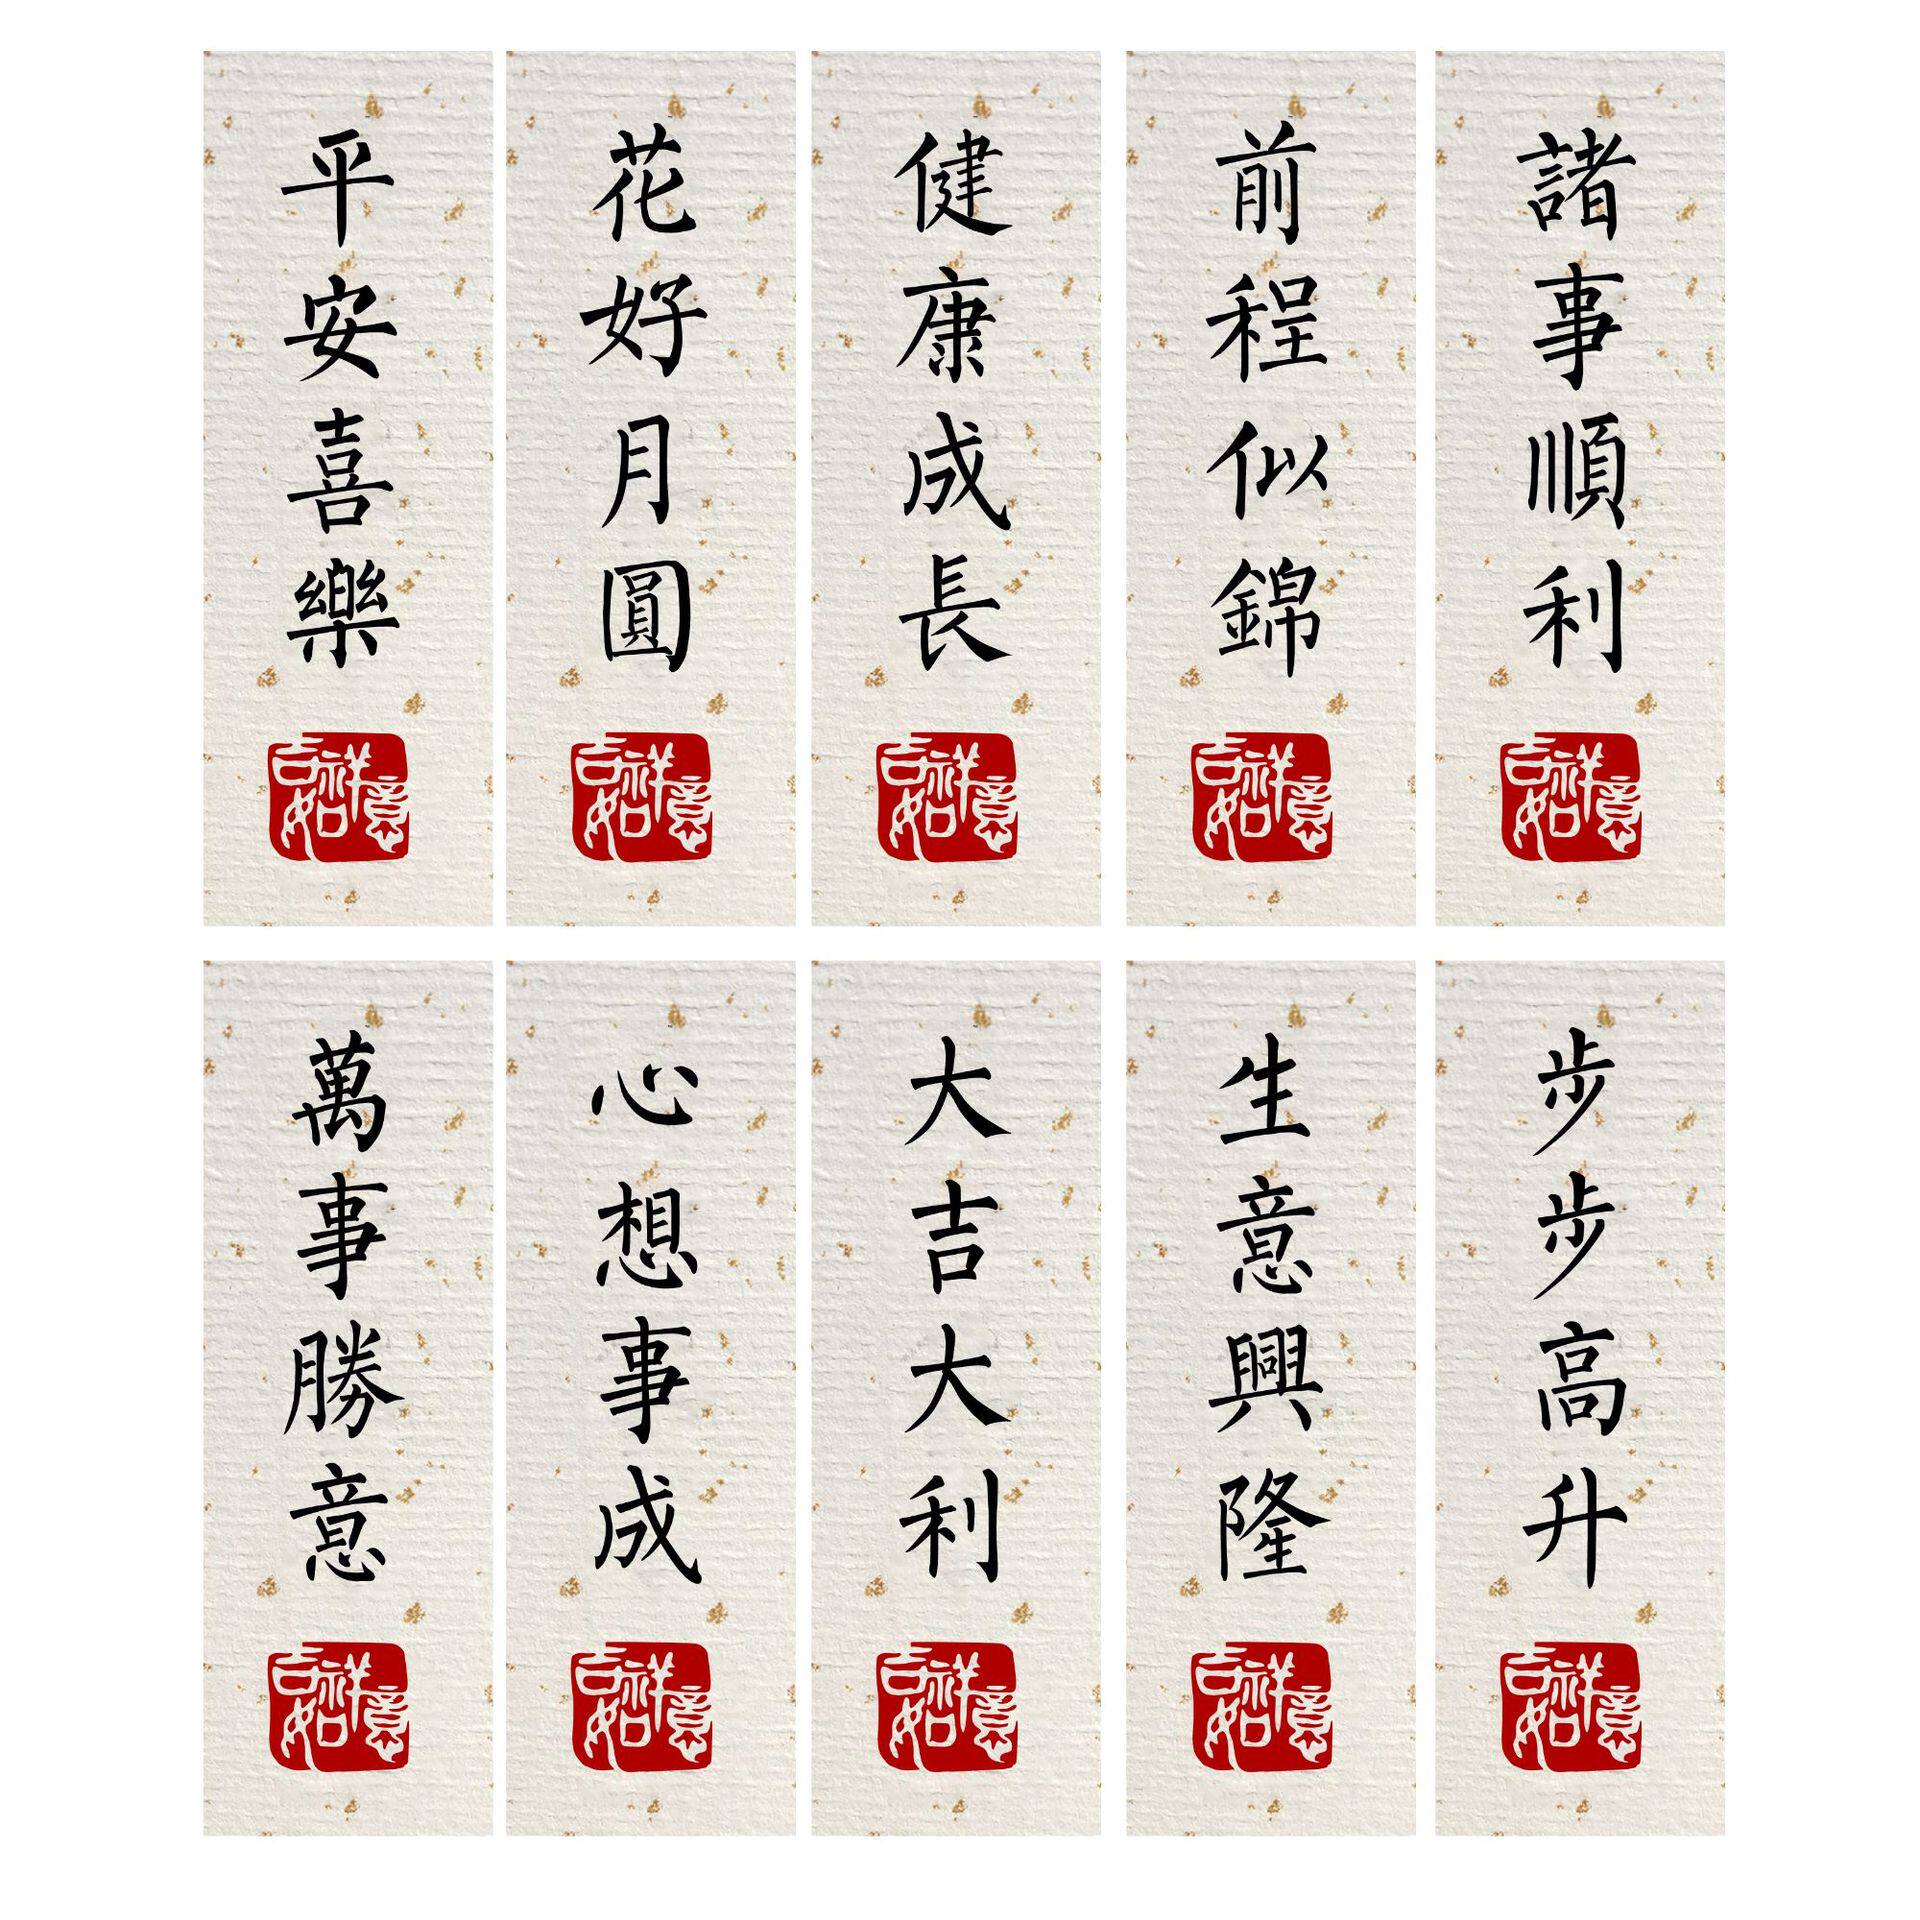 平安喜樂
吉祥如意
花好月圓
吉祥如意
健康成長
吉祥如意
前程似錦
吉祥如意
諸事順利
吉祥如意
萬事勝意
吉祥如意
心想事成
吉祥如意
大吉大利
吉祥如意
生意興隆
吉祥如意
步步高升
吉祥如意